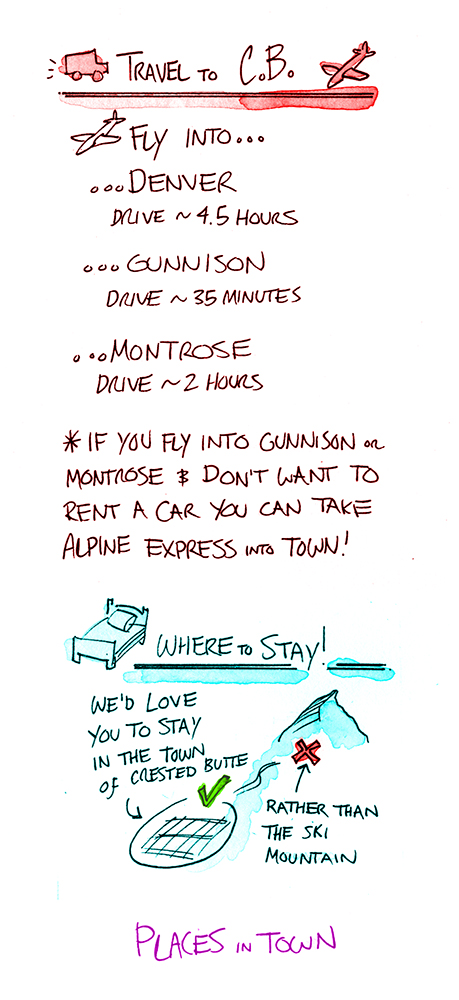 TRAVEL TO C.B.
FLY INTO...
...DENVER
DRIVE ~ 4.5 HOURS
...GUNNISON
DRIVE ~ 35 MINUTES
...MONTROSE
DRIVE ~ 2 HOURS
* IF YOU FLY INTO GUNNISON OR
MONTROSE & DON'T WANT TO
RENT A CAR YOU CAN TAKE
ALPINE EXPRESS INTO TOWN!
WHERE TO STAY!
WE'D LOVE
YOU TO STAY
IN THE TOWN
OF CRESTED BUTTE
RATHER THAN
THE SKI
MOUNTAIN
PLACES IN TOWN